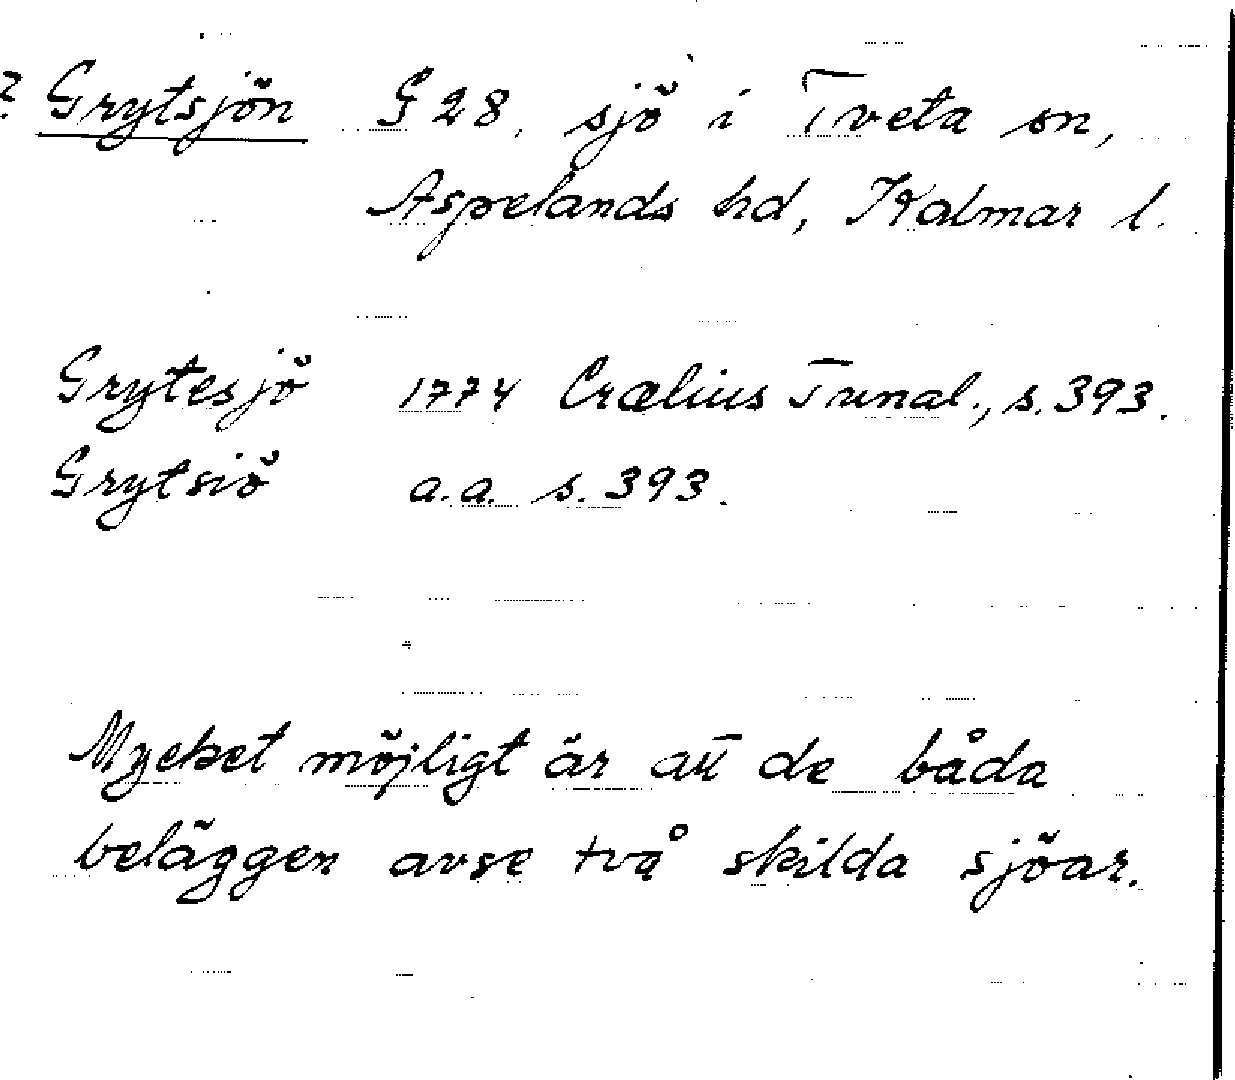 ? Grytsjön G 28, sjö i Tveta sn,
Aspelands hd, Kalmar l.
Grytesjö 1774 Crælius Tunal., s. 393.
Grytsiö a.a. s. 393.
Mycket möjligt är att de båda
beläggen avse två skilda sjöar.